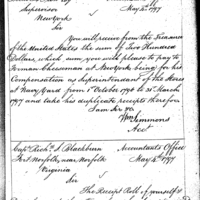 Supervisor May 5th 1797
Newyork
Sir
You will receive from the Treasurer
of the United States the sum of Two Hundred
Dollars, which sum you will please to pay to
Forman Cheeseman at Newyork being for his
Compensation as Superintendent of the Stores
at Navy Yard from 1st October 1796 to 31 March
1797 and take his duplicate receipts therefor
I am Sir &c
Wm Simmons
Acct
Capt Richd S. Blackburn Accountants Office
Fort Norfolk, near Norfolk May 5th 1797
Virginia
Sir
The Receipt Roll of yourself &